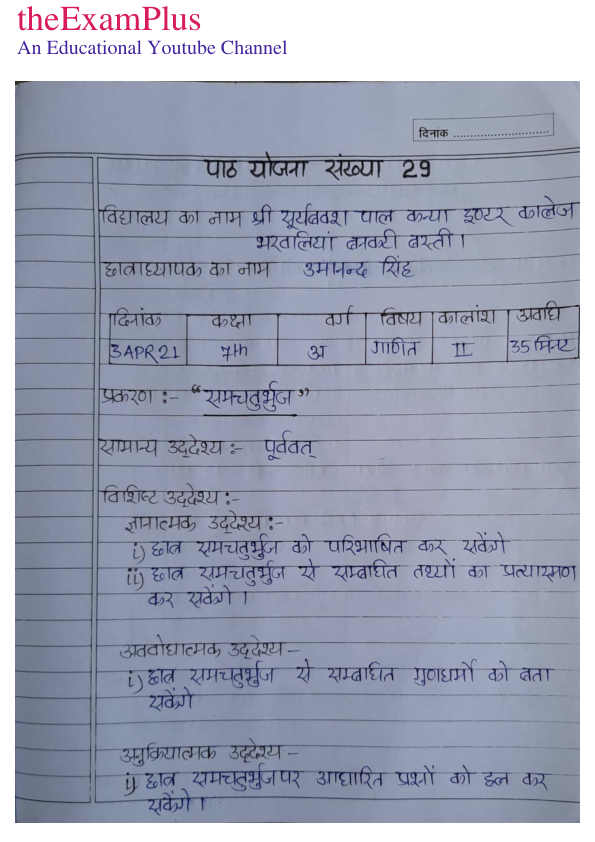 theExamPlus
An Educational Youtube Channel
दिनांक
पाठ योजना संख्या 29
विद्यालय का नाम श्री सूर्यबक्श पाल कन्या इण्टर कालेज
भरवलियां बनकटी बस्ती।
छात्राध्यापक का नाम उमानन्द सिंह
दिनांक कक्षा वर्ग विषय कालांश अवधि
3APR21 7th अ गणित II 35 मिनट
प्रकरण :- "समचतुर्भुज"
सामान्य उद्देश्य :- पूर्ववत्
विशिष्ट उद्देश्य :-
ज्ञानात्मक उद्देश्य :-
i) छात्र समचतुर्भुज को परिभाषित कर सकेंगे
ii) छात्र समचतुर्भुज से सम्बाधित तथ्यों का प्रत्यास्मण
कर सकेंगे।
अवबोधात्मक उद्देश्य –
i) छात्र समचतुर्भुज से सम्बाधित गुणधर्मो को बता
सकेंगे
अनुक्रियात्मक उद्देश्य –
i) छात्र समचतुर्भुज पर आधारित प्रश्नों को हल कर
सकेंगे।